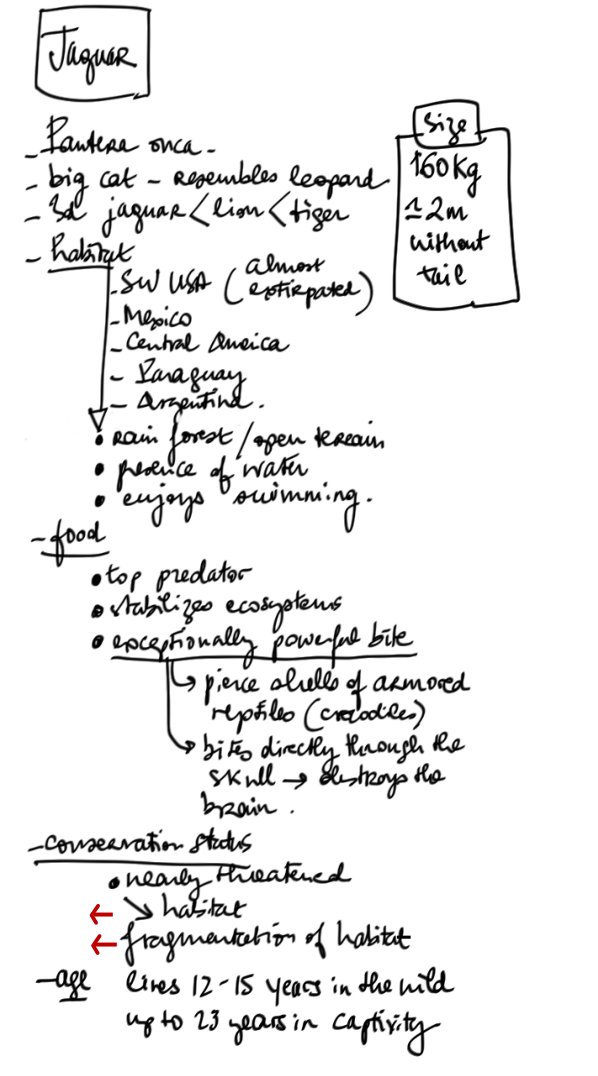 Jaguar
- Pantera onca -
- big cat - resembles leopard
- 3d jaguar < lion < tiger
Size
160 Kg
≃ 2m
without
tail
- habitat
- SW USA (almost
extirpated)
- Mexico
- Central America
- Paraguay
- Argentina.
• rain forest / open terrain
• presence of water
• enjoys swimming.
- food
• top predator
• stabilizes ecosystems
• exceptionally powerful bite
↳ pierce shells of armored
reptiles (crocodiles)
↳ bites directly through the
skull → destroys the
brain.
- conservation status
• nearly threatened
← ↘ habitat
← fragmentation of habitat
- age lives 12-15 years in the wild
up to 23 years in captivity